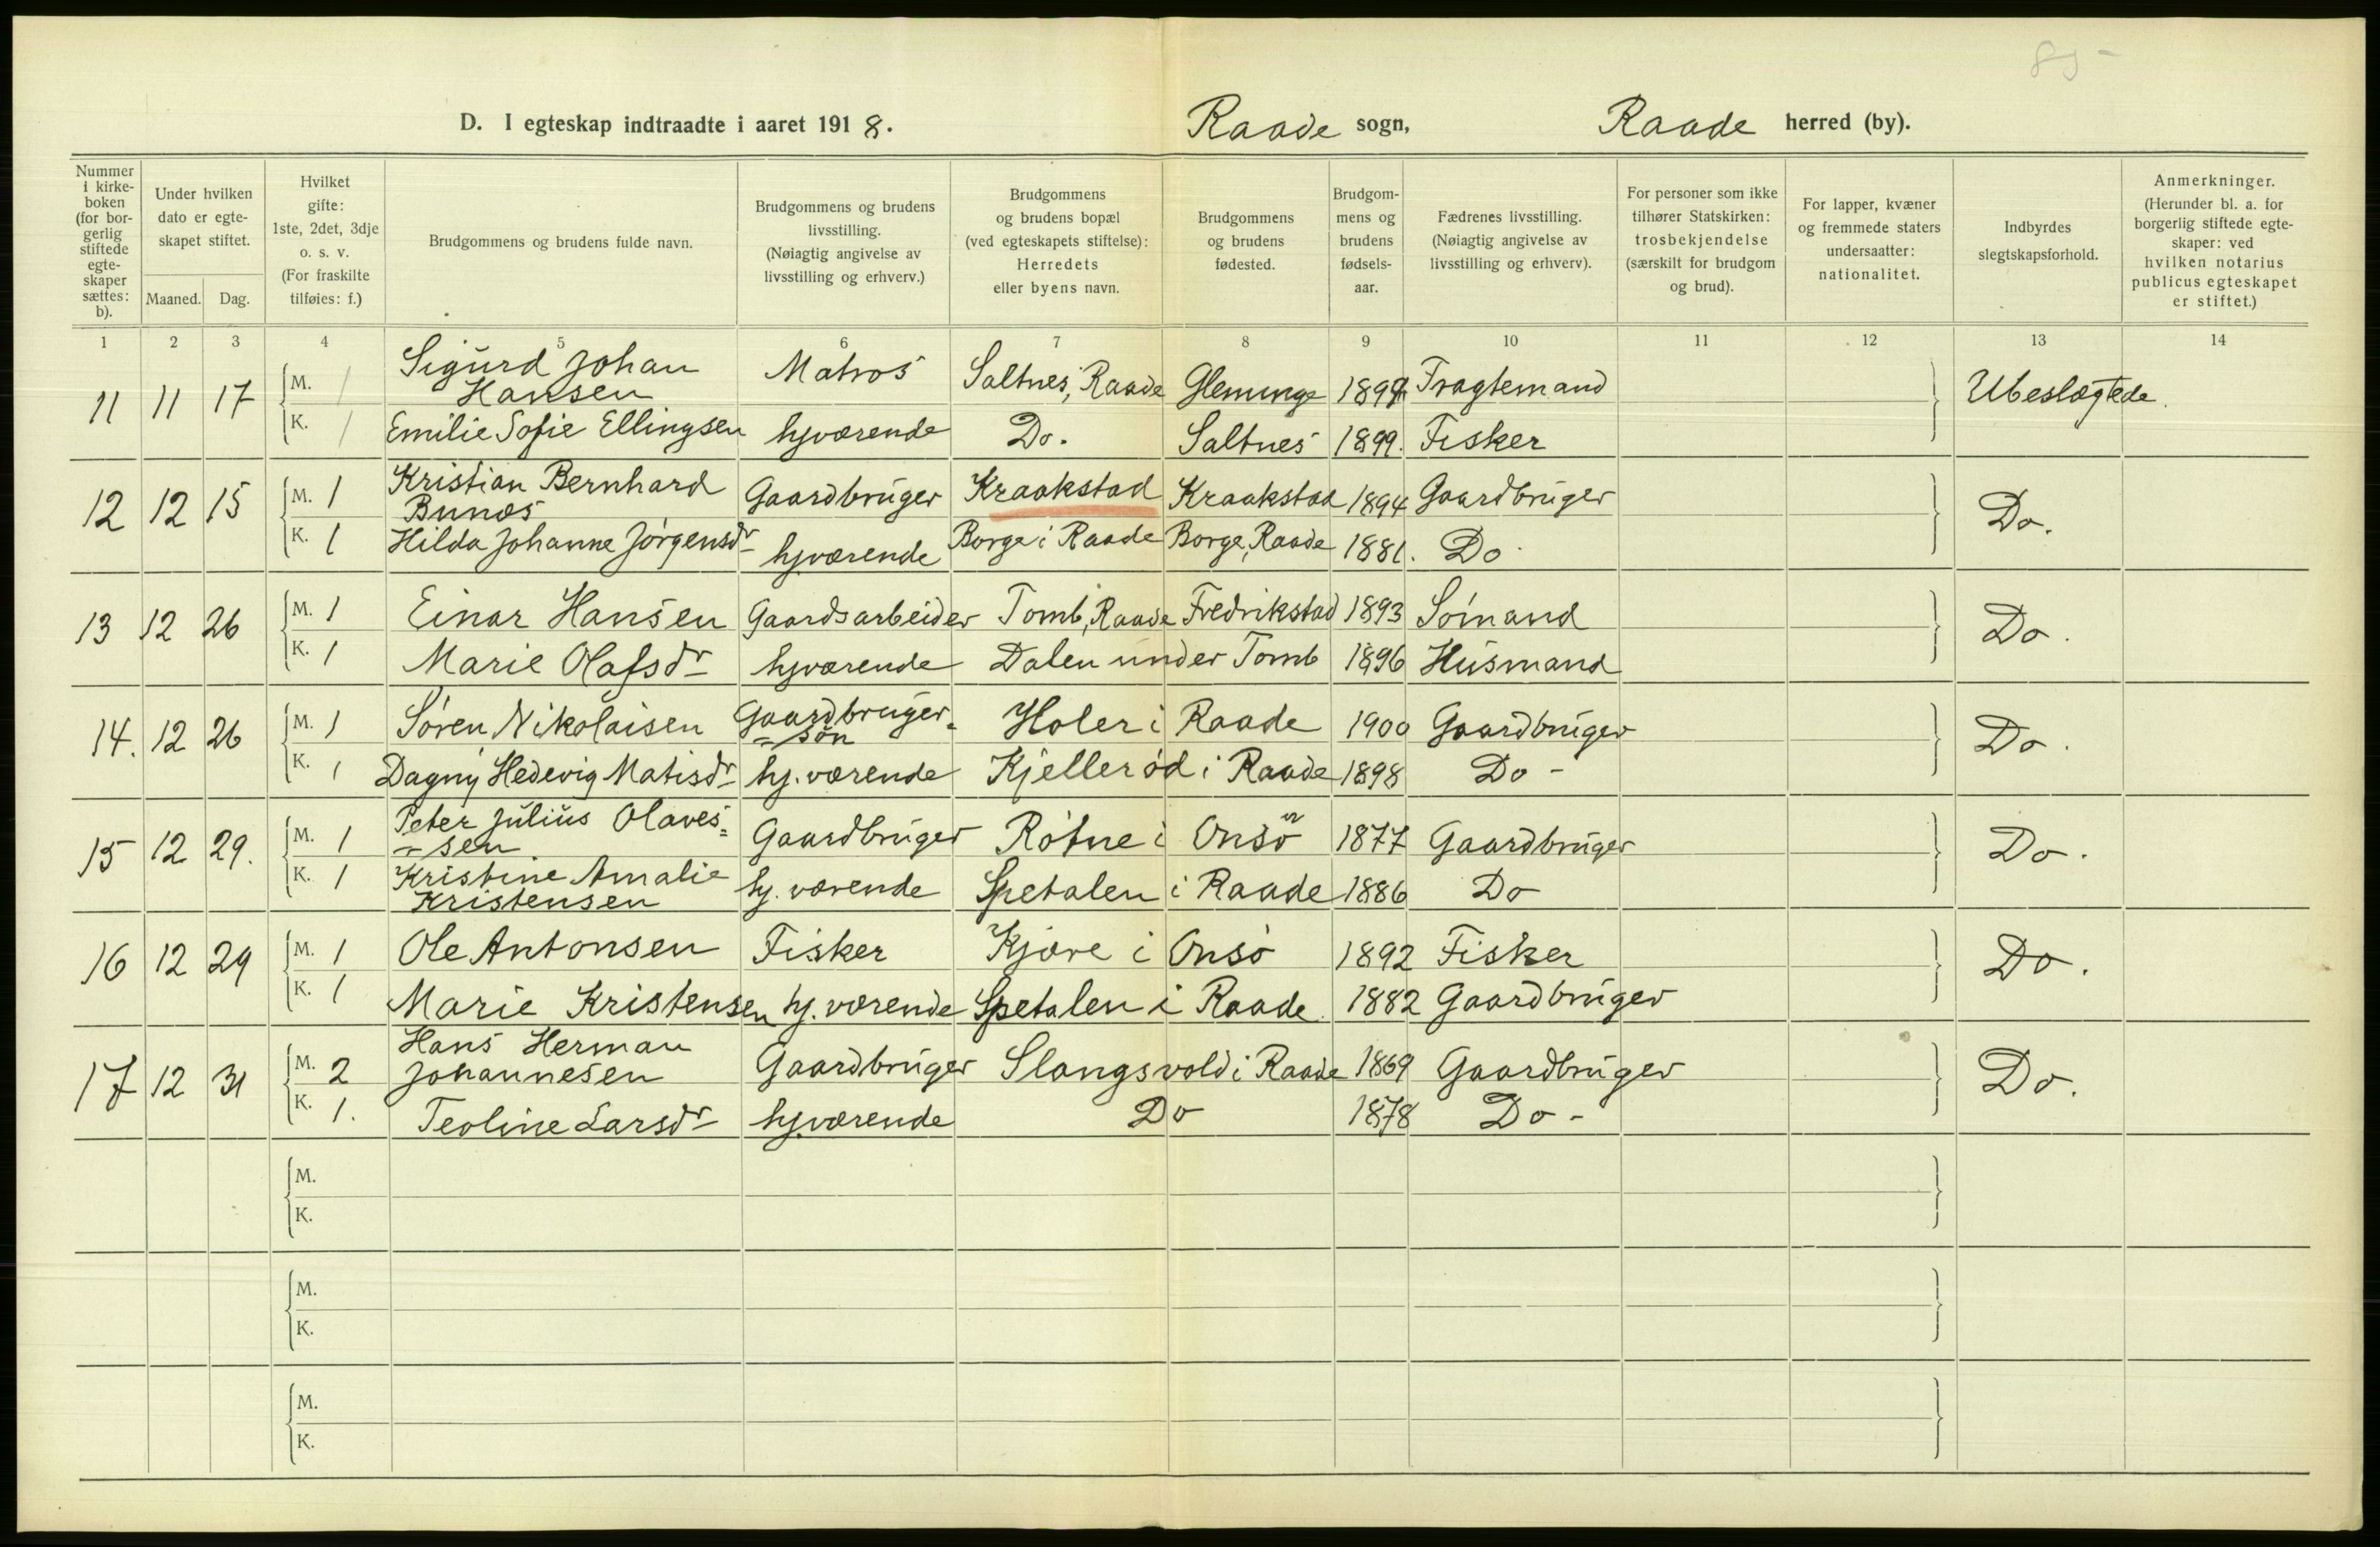 89 -
D. I egteskap indtraadte i aaret 1918. Raade sogn, Raade herred (by).
Nummer i kirke- boken (for bor- gerlig stiftede egte- skaper sættes: b).
Under hvilken dato er egte- skapet stiftet.
Maaned. Dag.
Hvilket gifte: 1ste, 2det, 3dje o. s. v. (For fraskilte tilføies: f.)
Brudgommens og brudens fulde navn.
Brudgommens og brudens livsstilling. (Nøiagtig angivelse av livsstilling og erhverv.)
Brudgommens og brudens bopæl (ved egteskapets stiftelse): Herredets eller byens navn.
Brudgommens og brudens fødested.
Brudgom- mens og brudens fødsels- aar.
Fædrenes livsstilling. (Nøiagtig angivelse av livsstilling og erhverv).
For personer som ikke tilhører Statskirken: trosbekjendelse (særskilt for brudgom og brud).
For lapper, kvæner og fremmede staters undersaatter: nationalitet.
Indbyrdes slegtskapsforhold.
Anmerkninger. (Herunder bl. a. for borgerlig stiftede egte- skaper: ved hvilken notarius publicus egteskapet er stiftet.)
1 2 3 4 5 6 7 8 9 10 11 12 13 14
11 11 17 M. 1 Sigurd Johan Hansen Matros Saltnes, Raade Gleminge Fragtemand Ubeslægtede.
K. 1 Emilie Sofie Ellingsen hjværende Do. Saltnes 1899. Fisker
12 12 15 M. 1 Kristian Bernhard Bunæs Gaardbruger Kraakstad Kraakstad 1894 Gaardbruger Do.
K. 1 Hilda Johanne Jørgensdr hjværende Borge i Raade Borge, Raade 1881. Do
13 12 26 M. 1 Einar Hansen Gaardsarbeider Tomb, Raade Fredrikstad 1893 Sømand Do.
K. 1 Marie Olafsdr hjværende Dalen under Tomb 1896 Husmand
14. 12 26 M. 1 Søren Nikolaisen Gaardbruger- = søn Holer i Raade 1900 Gaardbruger Do.
K. 1 Dagny Hedevig Matisdr hj.værende Kjellerød i Raade 1898 Do -
15 12 29. M. 1 Peter Julius Olaves= = sen Gaardbruger Rötne i Onsö 1877 Gaardbruger Do.
K. 1 Kristine Amalie Kristensen hj. værende Spetalen i Raade 1886 Do
16 12 29 M. 1 Ole Antonsen Fisker Kjære i Onsö 1892 Fisker Do.
K. 1 Marie Kristensen hj. værende Spetalen i Raade 1882 Gaardbruger
17 12 31 M. 2 Hans Herman Johannesen Gaardbruger Slangsvold i Raade 1869 Gaardbruger Do.
K. 1. Teoline Larsdr hjværende Do 1878 Do -
M.
K.
M.
K.
M.
K.